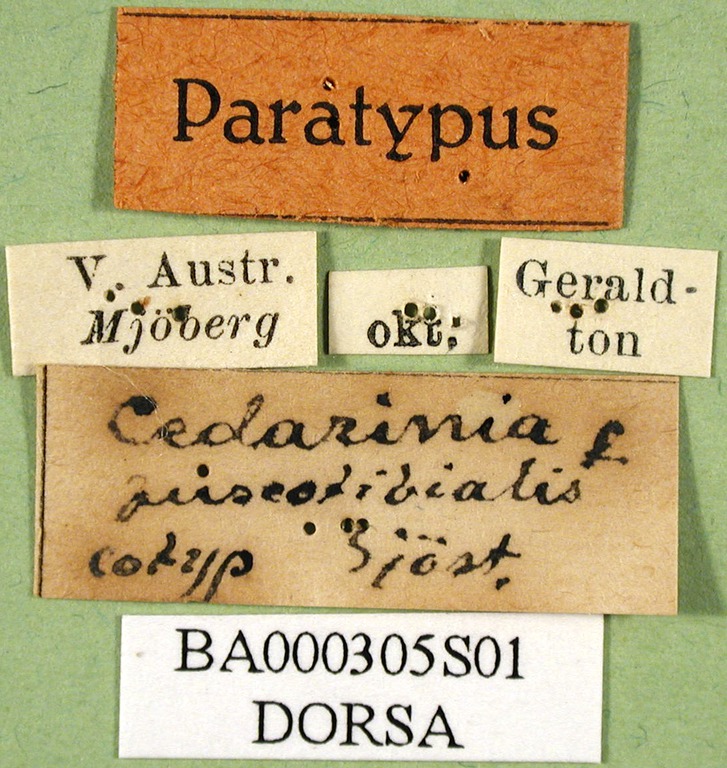 Paratypus
V. Austr.
Mjöberg
okt.
Gerald-
ton
Cedarinia
fuscotibialis
cotyp Sjöst.
BA000305S01
DORSA